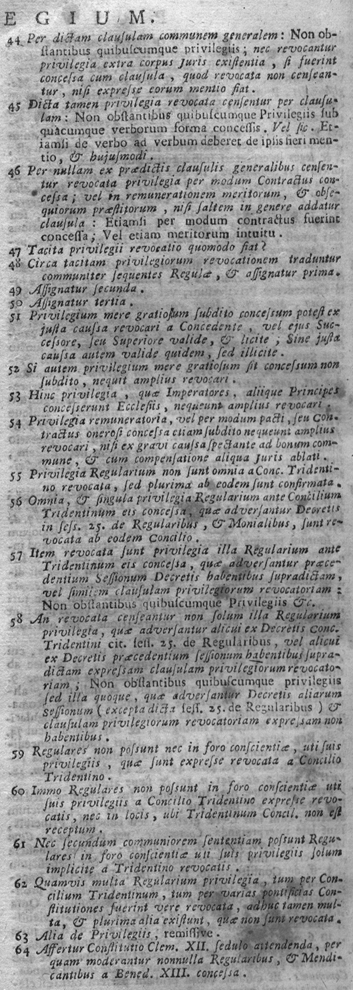 EGIUM.
44 Per dictam clausulam communem generalem: Non ob-
stantibus quibuscumque privilegiis; nec revocantur
privilegia extra corpus juris existentia, si fuerint
concessa cum clausula, quod revocata non censean-
tur, nisi expresse eorum mentio fiat.
45 Dicta tamen privilegia revocata censentur per clausu-
lam: Non obstantibus quibuscumque Privilegiis sub
quacumque verborum forma concessis. Vel sic. Et-
iamsi de verbo ad verbum deberet de ipsis fieri men-
tio, & hujusmodi.
46 Per nullam ex prædictis clausulis generalibus censen-
tur revocata privilegia per modum Contractus con-
cessa; vel in remunerationem meritorum, & obse-
quiorum præstitorum, nisi saltem in genere addatur
clausula: Etiamsi per modum contractus fuerint
concessa; Vel etiam meritorum intuitu.
47 Tacita privilegii revocatio quomodo fiat?
48 Circa tacitam privilegiorum revocationem traduntur
communiter sequentes Regulæ, & assignatur prima.
49 Assignatur secunda.
50 Assignatur tertia.
51 Privilegium mere gratiosum subdito concessum potest ex
justa caussa revocari a Concedente, vel ejus Suc-
cessore, seu Superiore valide, & licite; Sine justa
caussa autem valide quidem, sed illicite.
52 Si autem privilegium mere gratiosum sit concessum non
subdito, nequit amplius revocari.
53 Hinc privilegia, quæ Imperatores, aliique Principes
concesserunt Ecclesiis, nequeunt amplius revocari.
54 Privilegia remuneratoria, vel per modum pacti, seu Con-
tractus onerosi concessa etiam subdito nequeunt amplius
revocari, nisi ex gravi caussa spectante ad bonum com-
mune, & cum compensatione aliqua juris ablati.
55 Privilegia Regularium non sunt omnia a Conc. Tridenti-
no revocata, sed plurima ab eodem sunt confirmata.
56 Omnia, & singula privilegia Regularium ante Concilium
Tridentinum eis concessa, quæ adversantur Decretis
in sess. 25. de Regularibus, & Monialibus, sunt re-
vocata ab eodem Concilio.
57 Item revocata sunt privilegia illa Regularium ante
Tridentinum eis concessa, quæ adversantur præce-
dentium Sessionum Decretis habentibus supradictam,
vel similem clausulam privilegiorum revocatoriam:
Non obstantibus quibuscumque Privilegiis &c.
58 An revocata censeantur non solum illa Regularium
privilegia, quæ adversantur alicui ex Decretis Conc.
Tridentini cit. sess. 25. de Regularibus, vel alicui
ex Decretis præcedentium sessionum habentibus supra-
dictam expressam clausulam privilegiorum revocato-
riam; Non obstantibus quibuscumque privilegiis
sed illa quoque, quæ adversantur Decretis aliarum
Sessionum (excepta dicta sess. 25. de Regularibus) &
clausulam privilegiorum revocatoriam expressam non
habentibus.
59 Regulares non possunt nec in foro conscientiæ, uti suis
privilegiis, quæ sunt expresse revocata a Concilio
Tridentino.
60 Immo Regulares non possunt in foro conscientiæ uti
suis privilegiis a Concilio Tridentino expresse revo-
catis, nec in locis, ubi Tridentinum Concil. non est
receptum.
61 Nec secundum communiorem sententiam possunt Regu-
lares in foro conscientiæ uti suis privilegiis solum
implicite a Tridentino revocatis.
62 Quamvis multa Regularium privilegia, tum per Con-
cilium Tridentinum, tum per varias pontificias Con-
stitutiones fuerint vere revocata, adhuc tamen mul-
ta, & plurima alia existunt, quæ non sunt revocata.
63 Alia de Privilegiis, remissive.
64 Affertur Constitutio Clem. XII. sedulo attendenda, per
quam moderantur nonnulla Regularibus, & Mendi-
cantibus a Bened. XIII. concessa.